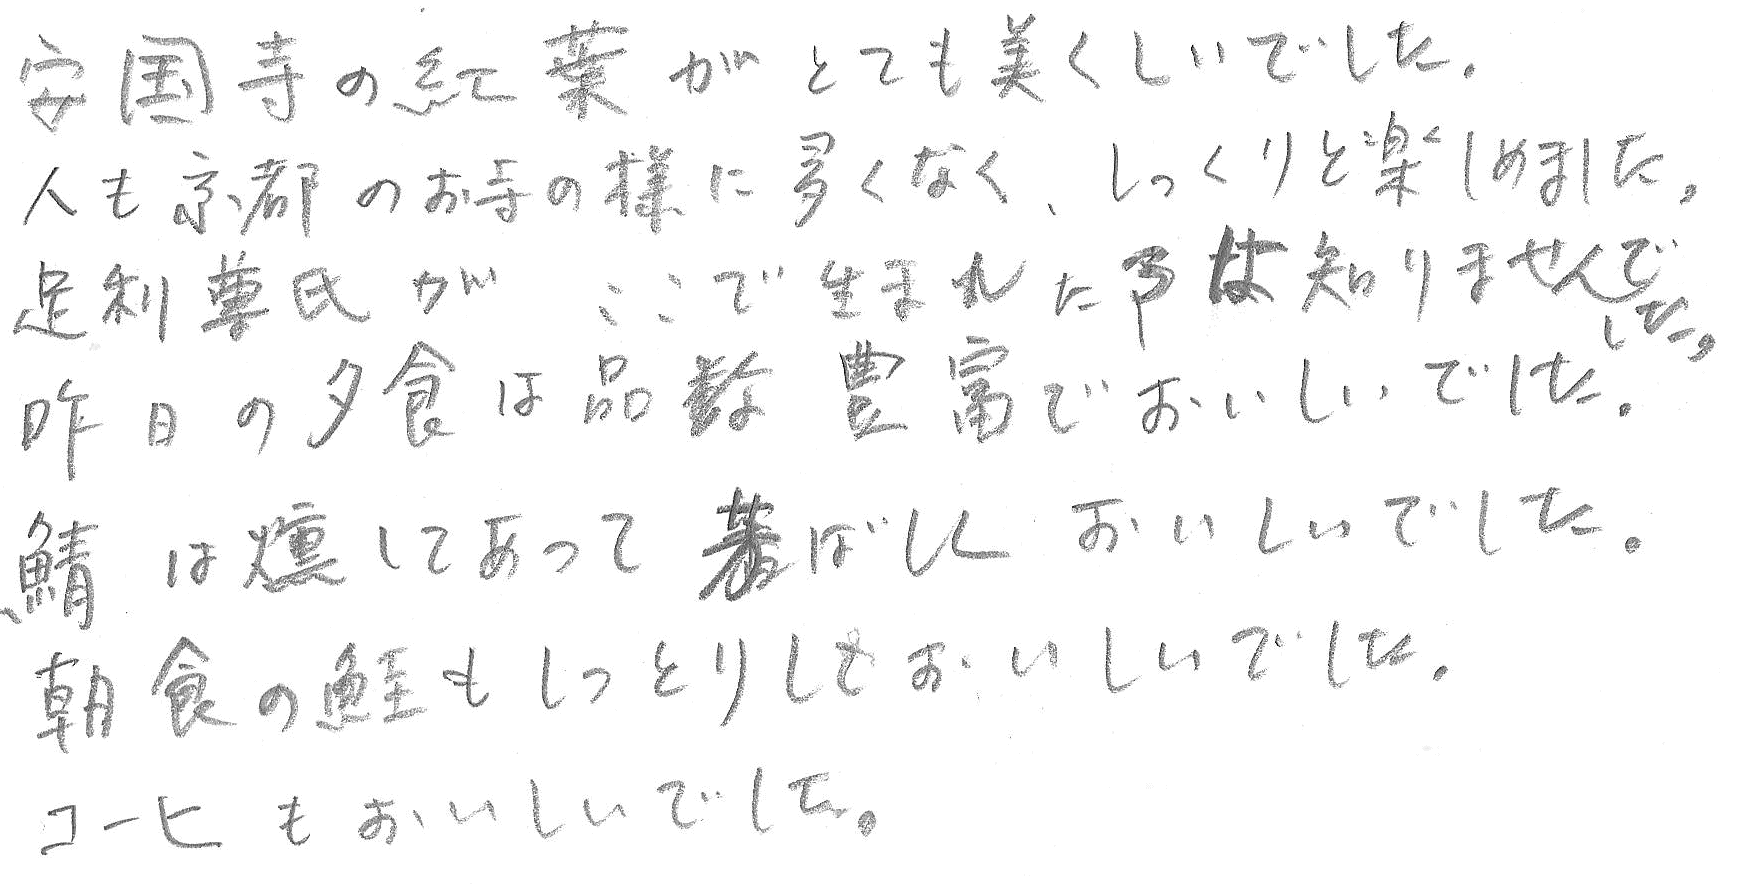 安国寺の紅葉がとても美くしいでした。
人も京都のお寺の様に多くなく、しっくりと楽しめました。
足利尊氏がここで生まれた事は知りませんでした。
昨日の夕食は品数豊富でおいしいでした。
鯖は燻してあって香ばしくおいしいでした。
朝食の鮭もしっとりしておいしいでした。
コーヒもおいしいでした。